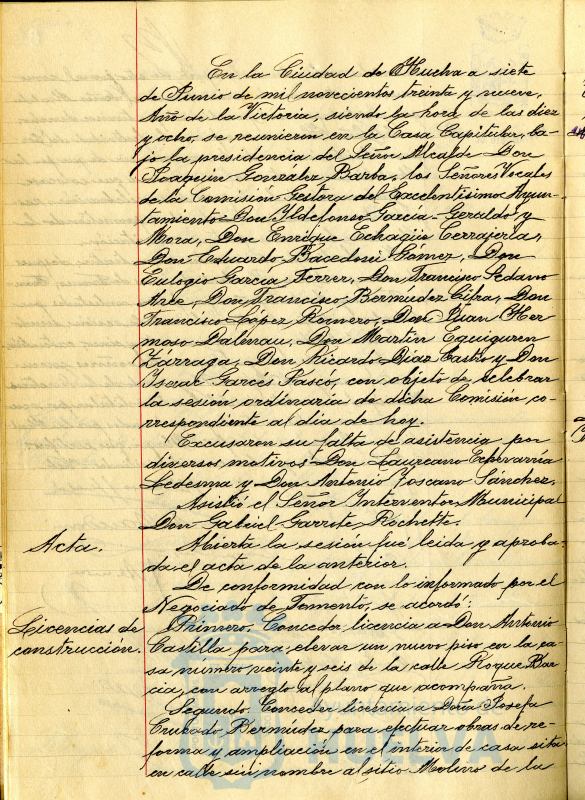 En la Ciudad de Huelva a siete
de Junio de mil novecientos treinta y nueve,
Año de la Victoria, siendo la hora de las diez
y ocho, se reunieron en la Casa Capitular, ba-
jo la presidencia del Señor Alcalde Don
Joaquin Gonzalez Barba, los Señores Vocales
de la Comisión Gestora del Excelentisimo Ayun-
tamiento Don Ildefonso Garcia-Geraldo y
Mora, Don Enrique Echagüe Cerrajería,
Don Eduardo Bacedoni Gómez, Don
Eulogio García Ferrer, Don Francisco Sedano
Arce, Don Francisco Bermúdez Cifra, Don
Francisco López Romero, Don Juan Her-
moso Dalinau, Don Martin Eguiguren
Zárraga, Don Ricardo Díaz Castro y Don
Isaac Garcés Pascó, con objeto de celebrar
la sesión ordinaria de dicha Comisión, co-
rrespondiente al dia de hoy.
Excusaron su falta de asistencia por
diversos motivos Don Laureano Echevarria
Ledesma y Don Antonio Toscano Sánchez.
Asistió el Señor Interventor Municipal
Don Gabriel Garrote Rochette.
Acta.
Abierta la sesión fué leida y aproba-
da el acta de la anterior.
De conformidad con lo informado por el
Negociado de Fomento, se acordó:
Licencias de
construcción.
Primero. Conceder licencia a Don Antonio
Castilla para elevar un nuevo piso en la ca-
sa número veinte y seis de la calle Roque Bar-
cia, con arreglo al plano que acompaña.
Segundo. Conceder licencia a Doña Josefa
Cruzado Bermúdez para efectuar obras de re-
forma y ampliación en el interior de casa sita
en calle sin nombre al sitio Molino de la